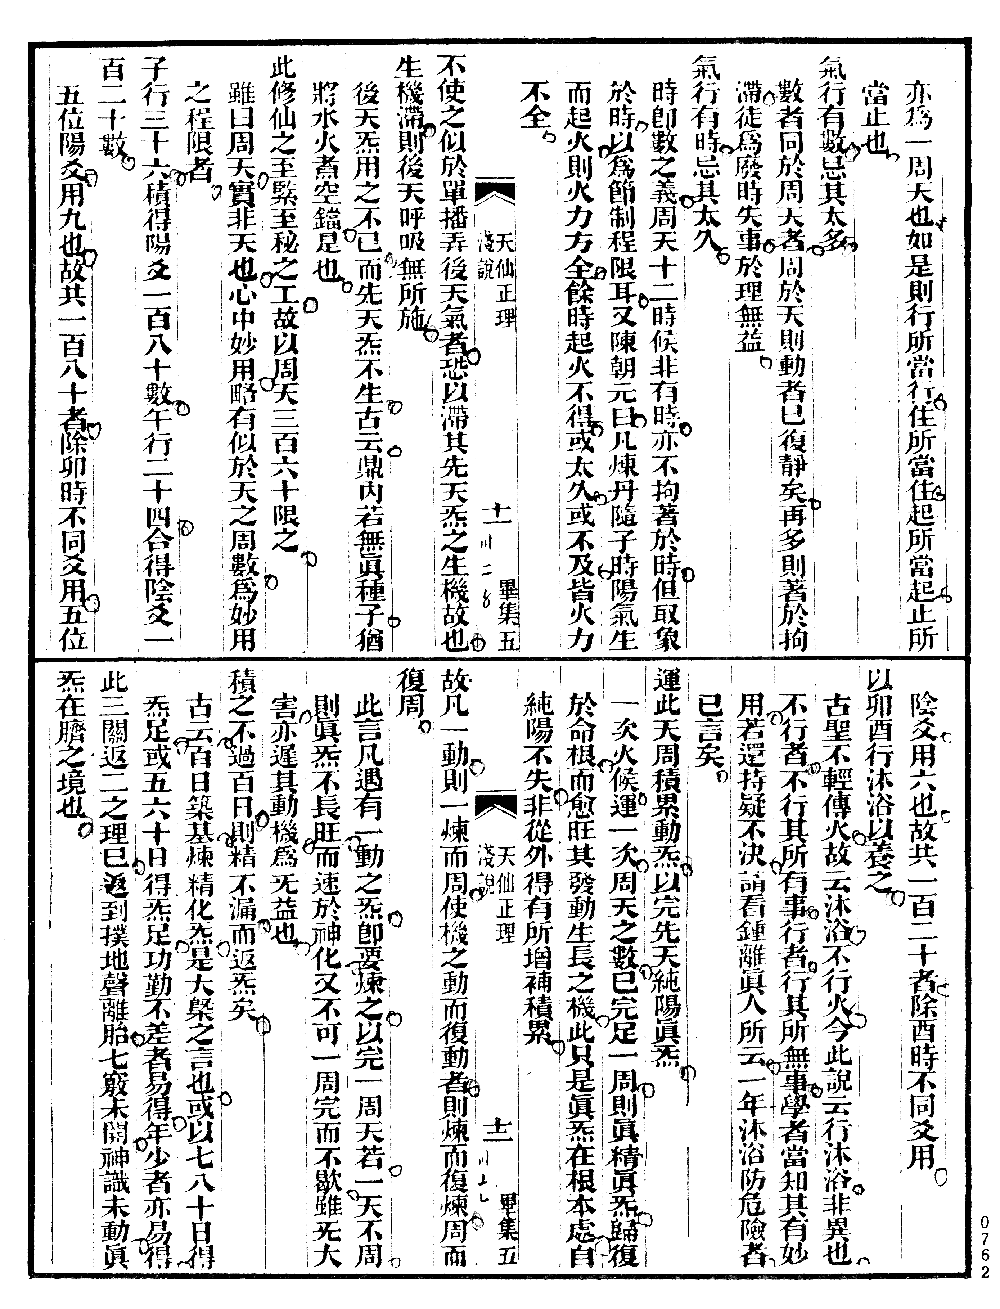 亦爲一周天也如是則行所當行住所當住起所當起止所
當止也
氣行有數忌其太多
數者同於周天者周於天則動者已復靜矣再多則著於拘
滯徒爲廢時失事於理無益
氣行有時忌其太久
時卽數之義周天十二時候非有時亦不拘著於時但取象
於時以爲節制程限耳又陳朝元曰凡煉丹隨子時陽氣生
而起火則火力方全餘時起火不得或太久或不及皆火力
不全
天仙正理
淺說
十一
畢集五
不使之似於單播弄後天氣者恐以滯其先天炁之生機故也
生機滯則後天呼吸無所施
後天炁用之不已而先天炁不生古云鼎內若無眞種子猶
將水火煑空鐺是也
此修仙之至緊至秘之工故以周天三百六十限之
雖曰周天實非天也心中妙用略有似於天之周數爲妙用
之程限者
子行三十六積得陽爻一百八十數午行二十四合得陰爻一
百二十數
五位陽爻用九也故共一百八十者除卯時不同爻用五位
陰爻用六也故共一百二十者除酉時不同爻用
以卯酉行沐浴以養之
古聖不輕傳火故云沐浴不行火今此說云行沐浴非異也
不行者不行其所有事行者行其所無事學者當知其有妙
用若還持疑不決請看鍾離眞人所云一年沐浴防危險者
已言矣
運此天周積累動炁以完先天純陽眞炁
一次火候運一次周天之數已完足一周則眞精眞炁歸復
於命根而愈旺其發動生長之機此只是眞炁在根本處自
純陽不失非從外得有所增補積累
天仙正理
淺說
十二
畢集五
故凡一動則一煉而周使機之動而復動者則煉而復煉周而
復周
此言凡遇有一動之炁卽要煉之以完一周天若一天不周
則眞炁不長旺而速於神化又不可一周完而不歇雖旡大
害亦遲其動機爲旡益也
積之不過百日則精不漏而返炁矣
古云百日築基煉精化炁是大槩之言也或以七八十日得
炁足或五六十日得炁足功勤不差者易得年少者亦易得
此三關返二之理已返到撲地聲離胎七竅未開神識未動眞
炁在臍之境也
0762